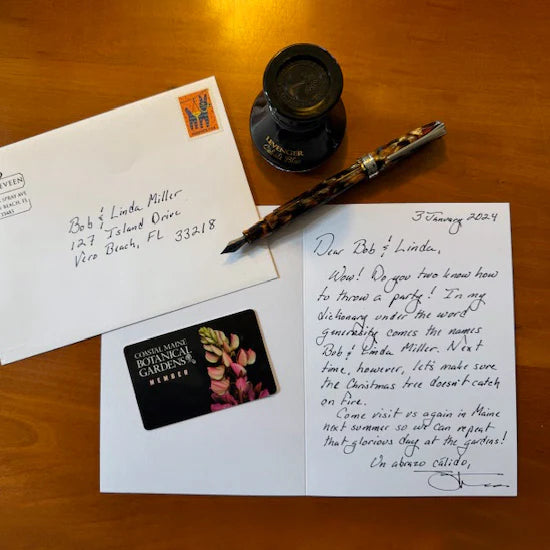 VEEN
SPRAY AVE
BEACH, FL
Bob & Linda Miller
127 Island Drive
Vero Beach, FL 33218
LEVENGER
3 January 2024
Dear Bob & Linda,
Wow! Do you two know how
to throw a party! In my
dichonary under the word
generosity comes the names
Bob & Linda Miller. Next
time, however, let's make sure
the Christmas tree doesn't catch
on fire.
Come visit us again in Maine
next summer so we can repeat
that glorious day at the gardens!
Un abrazo cálido,
COASTAL MAINE
BOTANICAL
GARDENS
MEMBER